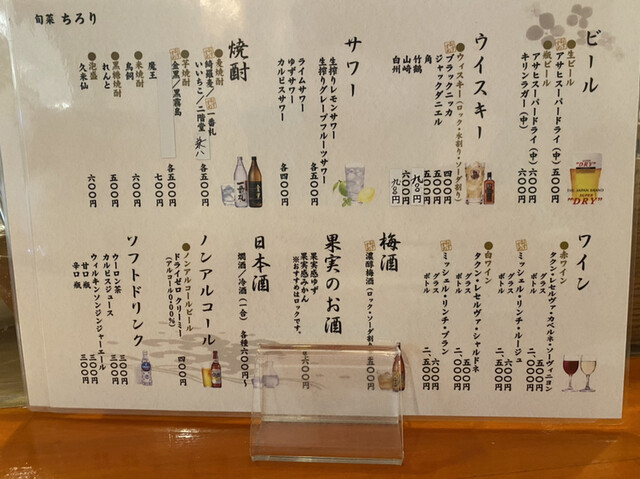 旬菜 ちろり
ビール
●生ビール
アサヒスーパードライ(中) 五〇〇円
●瓶ビール
アサヒスーパードライ(中) 六〇〇円
キリンラガー(中) 六〇〇円
ウイスキー
●ウィスキー(ロック・水割り・ソーダ割り)
ブラックニッカ 四〇〇円
ジャックダニエル 五〇〇円
角 五〇〇円
竹鶴 九〇〇円
山崎 六〇〇円
白州 九〇〇円
サワー
生搾りレモンサワー
生搾りグレープフルーツサワー 各五〇〇円
ライムサワー
ゆずサワー
カルピスサワー 各四〇〇円
焼酎
●麦焼酎
綺羅麦/一番札
いいちこ/二階堂 各五〇〇円
●芋焼酎
金黒/黒霧島 各五〇〇円
魔王 七〇〇円
●米焼酎
鳥飼 六〇〇円
●黒糖焼酎
れんと 五〇〇円
●泡盛
久米仙 六〇〇円
ワイン
●赤ワイン
タクン・レセルヴァ・カベルネ・ソーヴィニヨン
グラス 五〇〇円
ボトル 二、〇〇〇円
ミッシェル・リンチ・ルージュ
グラス 六〇〇円
ボトル 二、五〇〇円
●白ワイン
タクン・レセルヴァ・シャルドネ
グラス 五〇〇円
ボトル 二、〇〇〇円
ミッシェル・リンチ・ブラン
グラス 六〇〇円
ボトル 二、五〇〇円
梅酒
濃醇梅酒(ロック・ソーダ割り) 五〇〇円
果実のお酒
果実感ゆず
果実感みかん 六〇〇円
※おすすめはロックです。
日本酒
燗酒/冷酒(一合) 各種六〇〇円~
ノンアルコール
●ノンアルコールビール
ドライゼロ クリーミー 四〇〇円
(アルコール0.00%)
ソフトドリンク
ウーロン茶 三〇〇円
カルピスジュース 三〇〇円
ウィルキンソンジンジャーエール
甘口 瓶 三〇〇円
辛口 瓶 三〇〇円